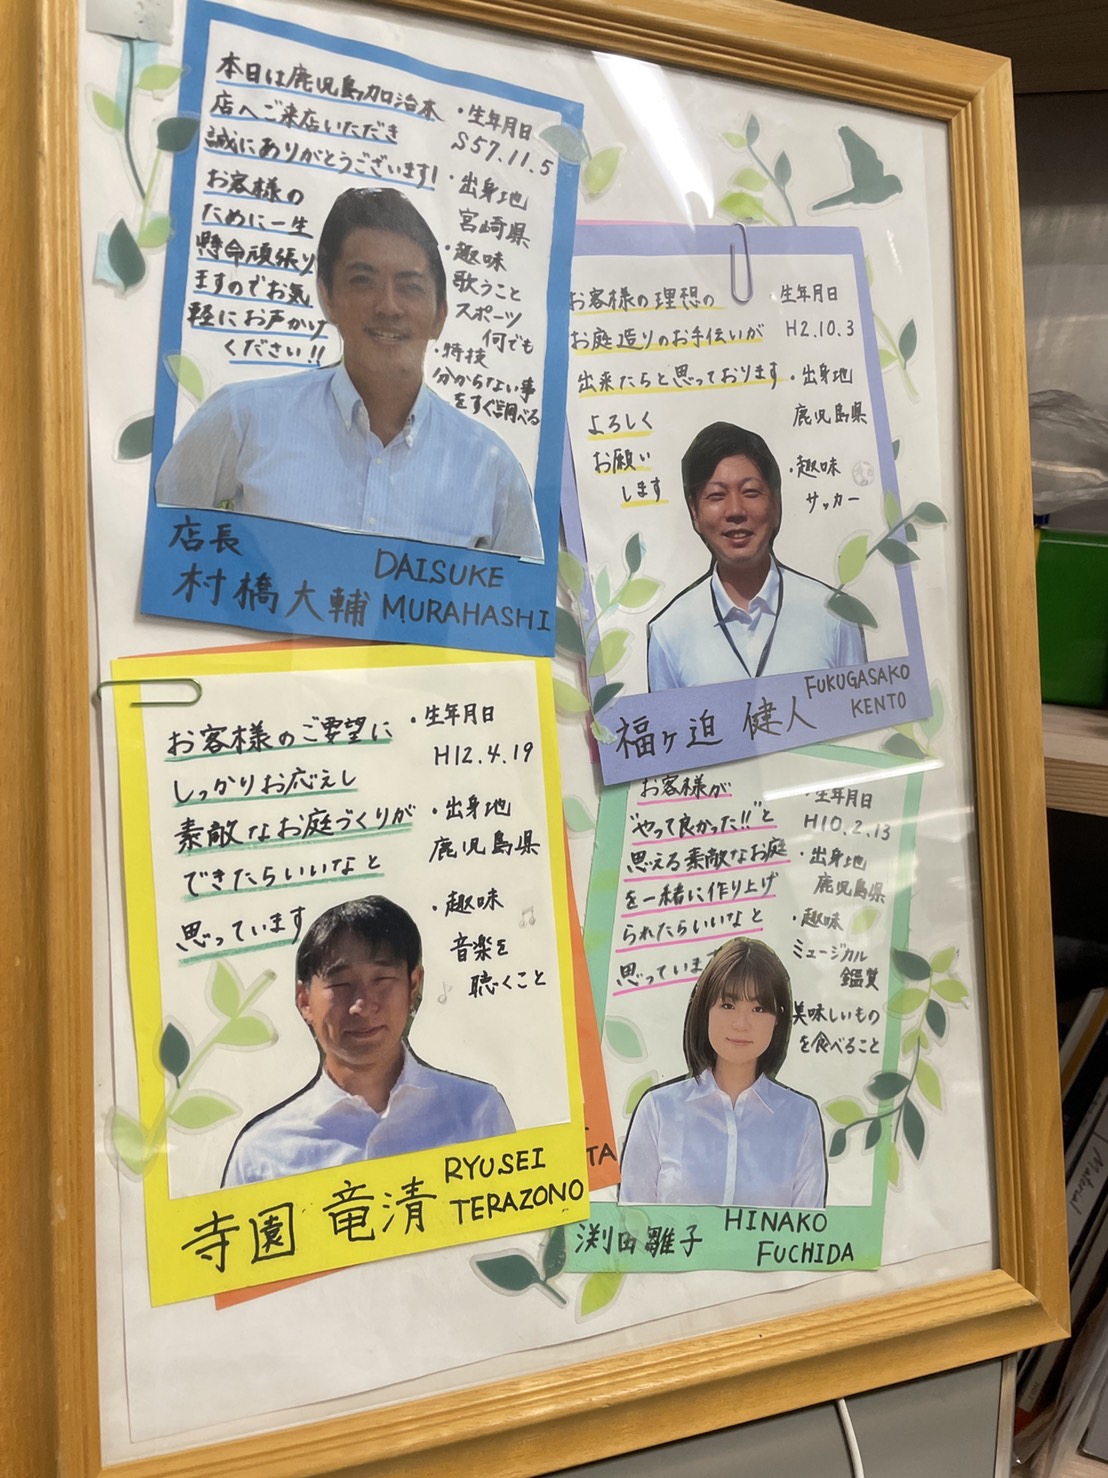 本日は鹿児島加治木
店へご来店いただき
誠にありがとうございます!
お客様の
ために一生
懸命頑張り
ますのでお気
軽にお声かけ
ください!!
・生年月日
S57.11.5
・出身地
宮崎県
・趣味
歌うこと
スポーツ
何でも
・特技
分からない事
をすぐ調べる
店長
村橋大輔
DAISUKE
MURAHASHI
お客様の理想の
お庭造りのお手伝いが
出来たらと思っております
よろしく
お願い
します
生年月日
H2.10.3
・出身地
鹿児島県
・趣味
サッカー
福ヶ迫 健人
FUKUGASAKO
KENTO
お客様のご要望に
しっかりお応えし
素敵なお庭づくりが
できたらいいなと
思っています
・生年月日
H12.4.19
・出身地
鹿児島県
・趣味
音楽を
聴くこと
寺園 竜清
RYUSEI
TERAZONO
お客様が
"やって良かった!!"と
思える素敵なお庭
を一緒に作り上げ
られたらいいなと
思っていま
・生年月日
H10.2.13
・出身地
鹿児島県
・趣味
ミュージカル
鑑賞
美味しいもの
を食べること
渕田雛子
HINAKO
FUCHIDA
TA
Material